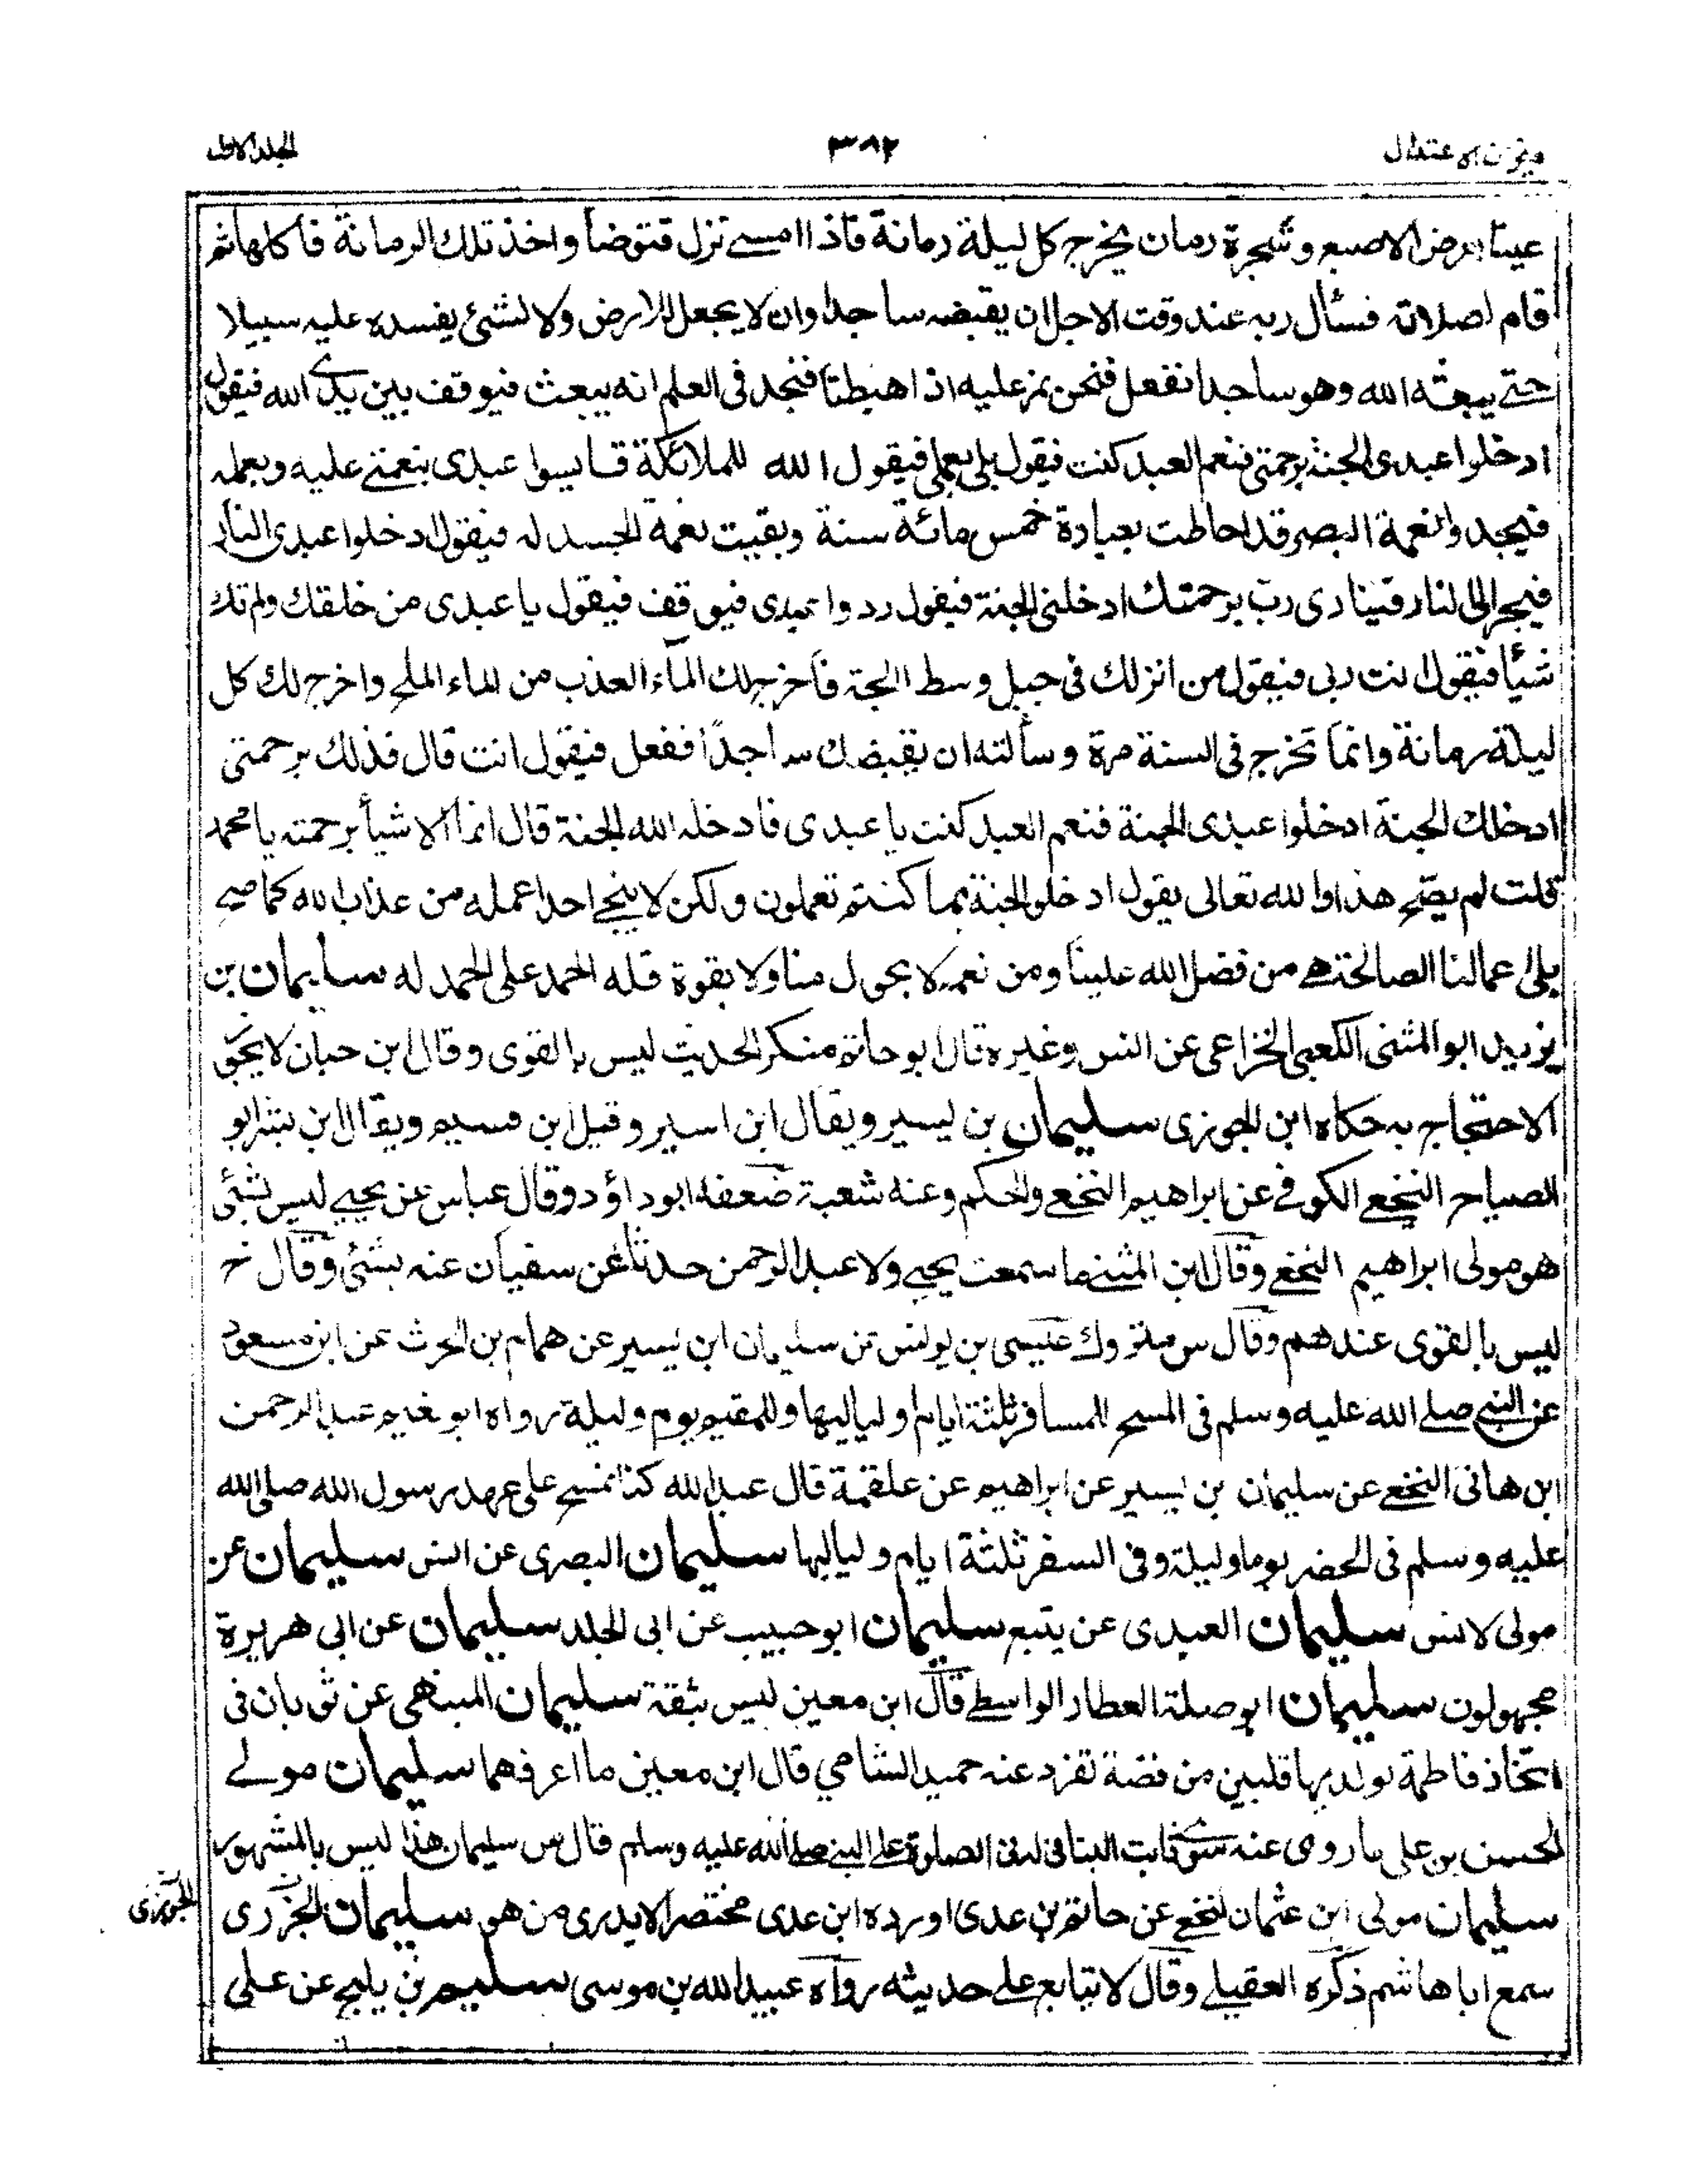 ميزان الاعتدال
٣٨٢
الجلد الاول
عينا بعرض الاصبع وشجرة رمان يخرج كل ليلة رمانة فاذا امسے نزل فتوضأ واخذ تلك الرمانة فأكلها ثم
قام لصلاته فسأل ربه عند وقت الاجل ان يقبضه ساجدا وان لا يجعل للارض ولا لشئ يفسده عليه سبيلا
حتے يبعثه الله وهو ساجدا نفعل فنحن نمر عليه اذا هبطنا فنجد فى العلم انه يبعث فيوقف بين يدے الله فيقول
ادخلوا عبدى الجنة برحمتى فنعم العبد كنت فيقول بلى بعملى فيقول الله للملائكة قايسوا عبدى بنعمتے عليه وبعمله
فيجدوا نعمة البصر قد احاطت بعبادة خمس مائة سنة وبقيت نعمة الجسد له فيقول ادخلوا عبدى النار
فيجر الى النار فينادى رب برحمتك ادخلنى الجنة فيقول ردوا عبدى فيوقف فيقول يا عبدى من خلقك ولم تك
شيأ فيقول انت ربى فيقول من انزلك فى جبل وسط اللجة فأخرج لك المآء العذب من الماء الملح واخرج لك كل
ليلة رمانة وانما تخرج فى السنة مرة وسألته ان يقبضك ساجداً ففعل فيقول انت قال فذلك برحمتى
ادخلك الجنة ادخلوا عبدى الجنة فنعم العبد كنت يا عبدى فادخله الله الجنة قال انما الاشيأ برحمته يا محمد
قلت لم يصح هذا والله تعالى يقول ادخلوا الجنة بما كنتم تعملون ولكن لا ينجے احدا عمله من عذاب الله كما صح
بلى اعمالنا الصالحة هے من فضل الله علينا ومن نعمه لا بحول منا ولا بقوة فله الحمد على الحمد له سليمان بن
يزيد ابو المثنى الكعبى الخزاعى عن انس وغيره قال ابو حاتم منكر الحديث ليس بالقوى وقال ابن حبان لا يجوز
الاحتجاج به حكاه ابن الجوزى سليمان بن يسير ويقال ابن اسير وقيل ابن قسيم ويقال ابن بشر ابو
الصباح النخعے الكوفے عن ابراهيم النخعے والحكم وعنه شعبة ضعفه ابو داؤد وقال عباس عن يحيے ليس بشئى
هو مولى ابراهيم النخعے وقال ابن المثنے ما سمعت يحيے ولا عبد الرحمن حدثا عن سفيان عنه بشئى وقال خ
ليس بالقوى عندهم وقال س متروك عيسى بن يونس عن سليمان ابن يسير عن همام بن الحرث عن ابن مسعود
عن النبے صلے الله عليه وسلم فى المسح للمسافر ثلثة ايام ولياليها وللمقيم يوم وليلة رواه ابو نعيم عبد الرحمن
ابن هانى النخعے عن سليمان بن يسير عن ابراهيم عن علقمة قال عبد الله كنا نمسح على عهد رسول الله صلى الله
عليه وسلم فى الحضر يوما وليلة وفى السفر ثلثة ايام ولياليها سليمان البصرى عن انس سليمان عن
مولى لانس سليمان العبدى عن يتبع سليمان ابو حبيب عن ابى الجلد سليمان عن ابى هريرة
مجهولون سليمان ابو صلة العطار الواسطے قال ابن معين ليس بثقة سليمان المنبهى عن ثوبان فى
اتخاذ فاطمة لولديها قلبين من فضة تفرد عنه حميد الشامي قال ابن معين ما اعرفهما سليمان مولے
الحسن بن على ما روى عنه سوے ثابت البنانى فى الصلوة على النبے صلے الله عليه وسلم قال س سليمان هذا ليس بالمشهور
سليمان مولى ابن عثمان النخعے عن حاتم بن عدى اورده ابن عدى مختصرا لا يدرى من هو سليمان الجزرى
الجويزى
سمع ابا هاشم ذكره العقيلے وقال لا يتابع على حديثه رواه عبيد الله بن موسى سليم بن بلج عن على